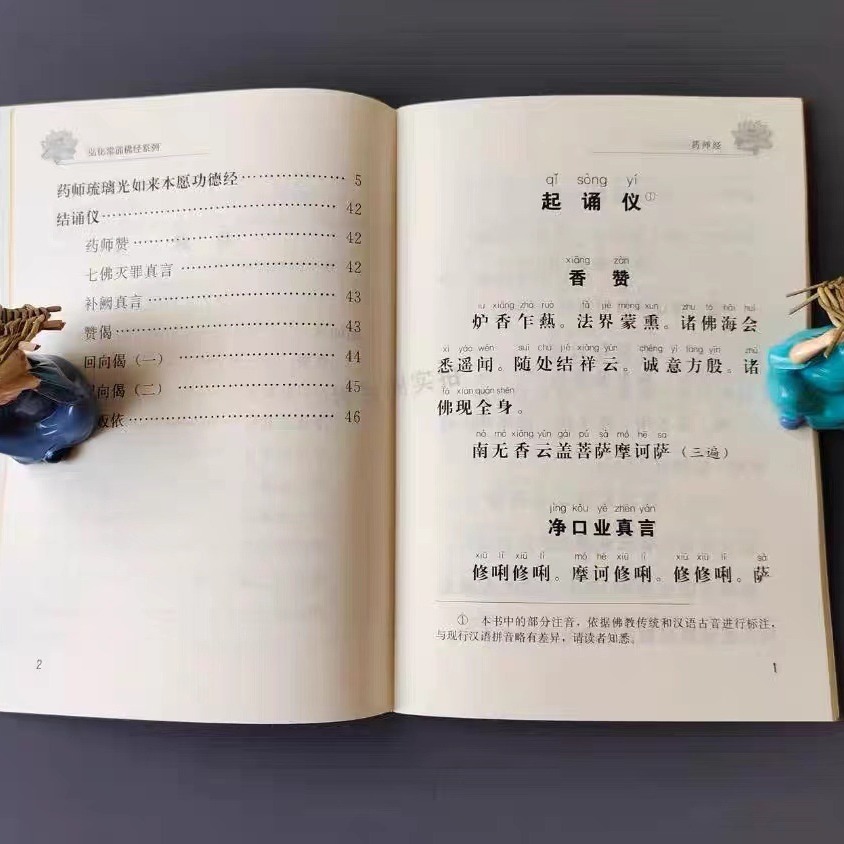 弘化常诵佛经系列
药师琉璃光如来本愿功德经 5
结诵仪 42
药师赞 42
七佛灭罪真言 42
补阙真言 43
赞偈 43
回向偈(一) 44
向偈(二) 45
皈依 46
2
药师经
qǐ sòng yí
起诵仪①
xiāng zàn
香赞
lú xiāng zhà ruò fǎ jiè méng xūn zhū fó hǎi huì
炉香乍爇。法界蒙熏。诸佛海会
xī yáo wén suí chù jié xiáng yún chéng yì fāng yīn zhū
悉遥闻。随处结祥云。诚意方殷。诸
fó xiàn quán shēn
佛现全身。
ná mó xiāng yún gài pú sà mó hē sà
南无香云盖菩萨摩诃萨(三遍)
jìng kǒu yè zhēn yán
净口业真言
xiū lī xiū lī mó hē xiū lī xiū xiū lī sà
修唎修唎。摩诃修唎。修修唎。萨
① 本书中的部分注音,依据佛教传统和汉语古音进行标注,
与现行汉语拼音略有差异,请读者知悉。
1